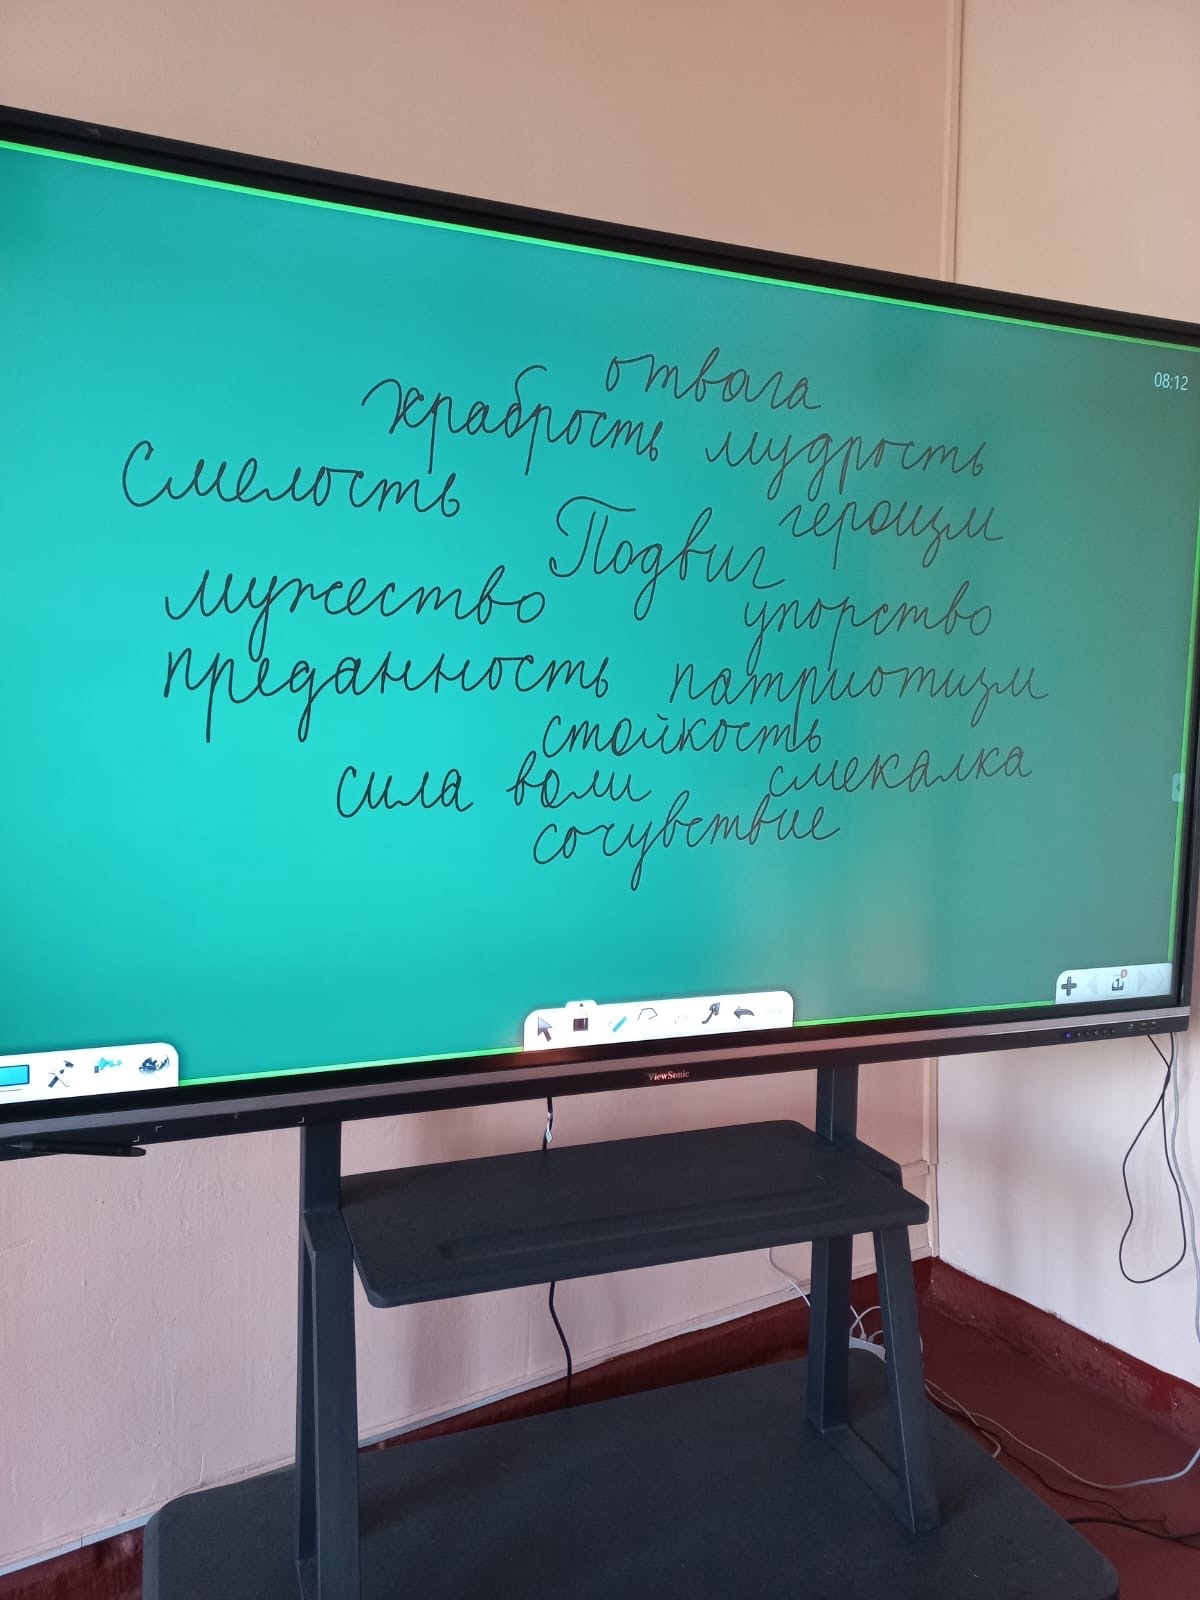 отвага
храбрость мудрость
Смелость
героизм
Подвиг
мужество упорство
преданность патриотизм
стойкость
сила воли смекалка
сочувствие
08:12
ViewSonic